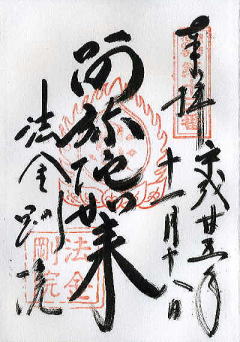 奉拝
平成廿五年
十一月十八日
阿弥陀如来
法金剛院
法金
剛院